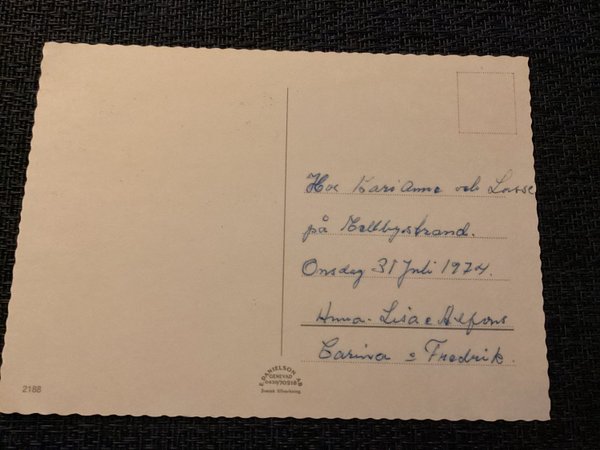 Hos Kari Anne och Lasse
på Mellbystrand.
Onsdag 31 Juli 1974.
Anna-Lisa o Alfons
Carina o Fredrik.
E. DANIELSON AB
GENEVAD
0430/70318
Svensk tillverkning
2188